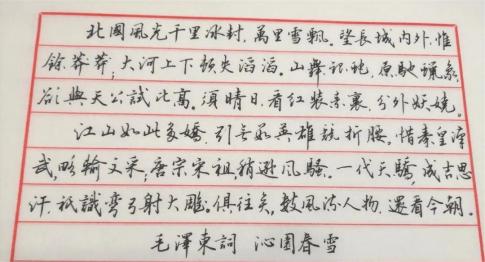 北國風光千里冰封，萬里雪飄。望長城內外，惟
餘莽莽；大河上下頓失滔滔。山舞銀蛇，原馳蠟象，
欲與天公試比高。須晴日，看紅裝素裹，分外妖嬈。
江山如此多嬌，引無數英雄競折腰。惜秦皇漢
武，略輸文采；唐宗宋祖，稍遜風騷。一代天驕，成吉思
汗，祇識彎弓射大雕。俱往矣，數風流人物，還看今朝。
毛澤東詞 沁園春雪